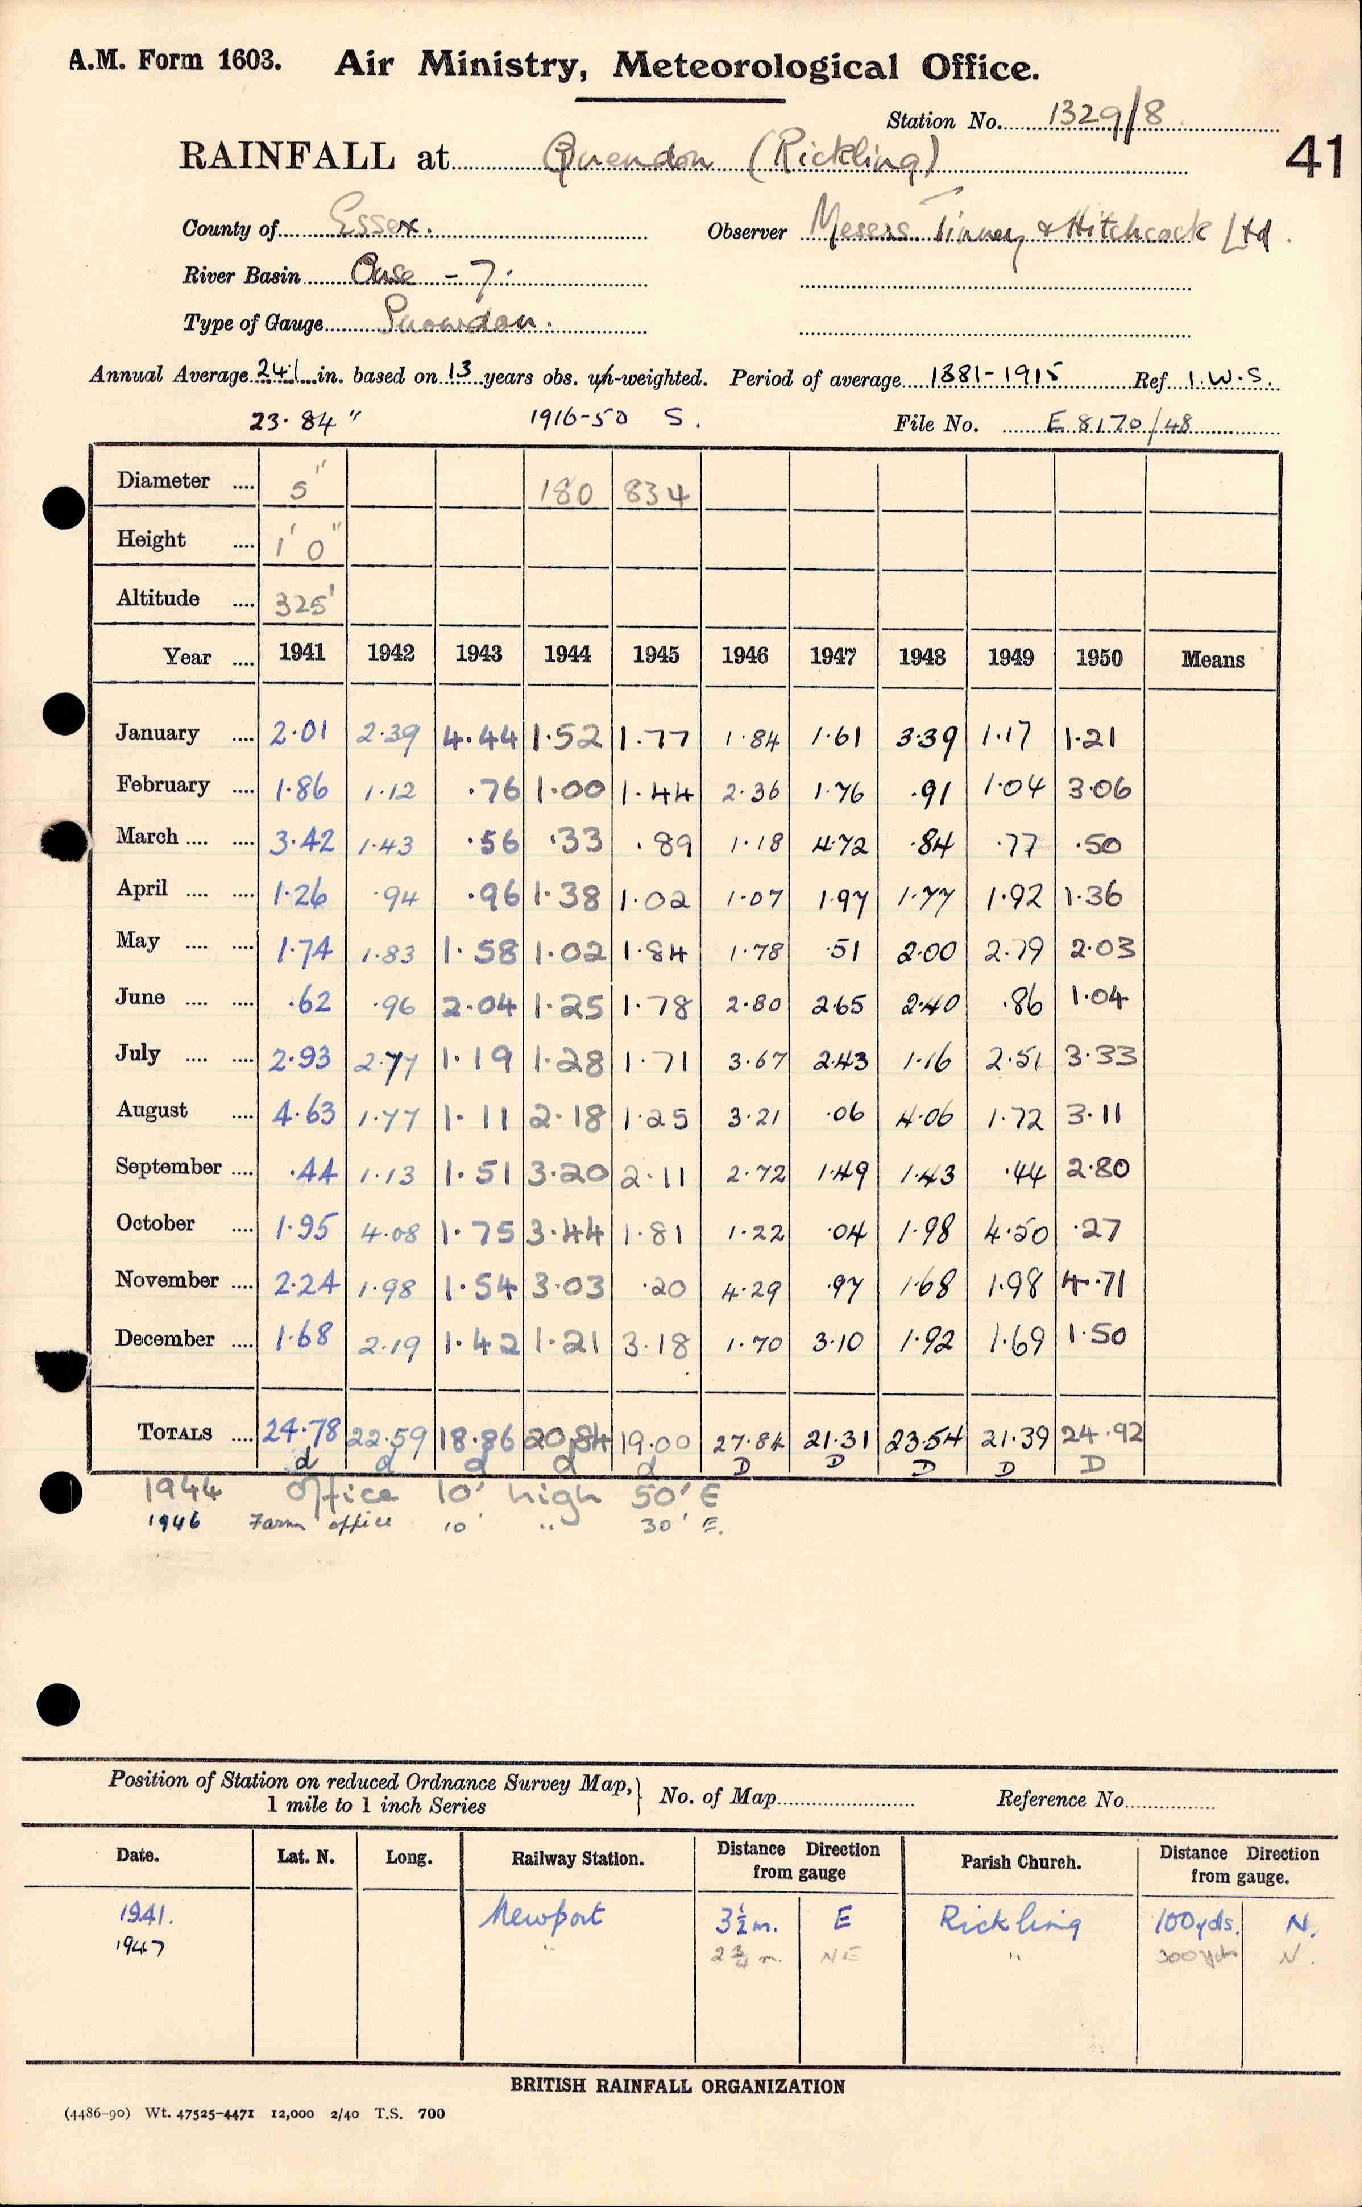 A.M. Form 1603. Air Ministry, Meteorological Office.
Station No. 1329/8
RAINFALL at Quendon (Rickling) 41
County of Essex. Observer Messrs Tinney & Hitchcock Ltd.
River Basin Ouse - 7.
Type of Gauge Snowdon.
Annual Average 24.1 in. based on 13 years obs. un-weighted. Period of average 1881-1915 Ref I.W.S.
23.84" 1916-50 S. File No. E 8170/48
Diameter .... 5" 180 834
Height .... 1' 0"
Altitude .... 325'
Year .... 1941 1942 1943 1944 1945 1946 1947 1948 1949 1950 Means
January .... 2.01 2.39 4.44 1.52 1.77 1.84 1.61 3.39 1.17 1.21
February .... 1.86 1.12 .76 1.00 1.44 2.36 1.76 .91 1.04 3.06
March .... .... 3.42 1.43 .56 .33 .89 1.18 4.72 .84 .77 .50
April .... .... 1.26 .94 .96 1.38 1.02 1.07 1.97 1.77 1.92 1.36
May .... .... 1.74 1.83 1.58 1.02 1.84 1.78 .51 2.00 2.79 2.03
June .... .... .62 .96 2.04 1.25 1.78 2.80 2.65 2.40 .86 1.04
July .... .... 2.93 2.77 1.19 1.28 1.71 3.67 2.43 1.16 2.51 3.33
August .... 4.63 1.77 1.11 2.18 1.25 3.21 .06 4.06 1.72 3.11
September .... .44 1.13 1.51 3.20 2.11 2.72 1.49 1.43 .44 2.80
October .... 1.95 4.08 1.75 3.44 1.81 1.22 .04 1.98 4.50 .27
November .... 2.24 1.98 1.54 3.03 .20 4.29 .97 1.68 1.98 4.71
December .... 1.68 2.19 1.42 1.21 3.18 1.70 3.10 1.92 1.69 1.50
TOTALS .... 24.78 22.59 18.86 20.84 19.00 27.84 21.31 23.54 21.39 24.92
d d d d d D D D D D
1944 Office 10' high 50' E
1946 Farm office 10' " 30' E.
Position of Station on reduced Ordnance Survey Map, 1 mile to 1 inch Series } No. of Map Reference No.
Date. Lat. N. Long. Railway Station. Distance Direction from gauge Parish Church. Distance Direction from gauge.
1941. Newport 3½ m. E Rickling 100 yds. N.
1947 " 2¾ m. NE " 300 yds N.
BRITISH RAINFALL ORGANIZATION
(4486-90) Wt. 47525-4471 12,000 2/40 T.S. 700